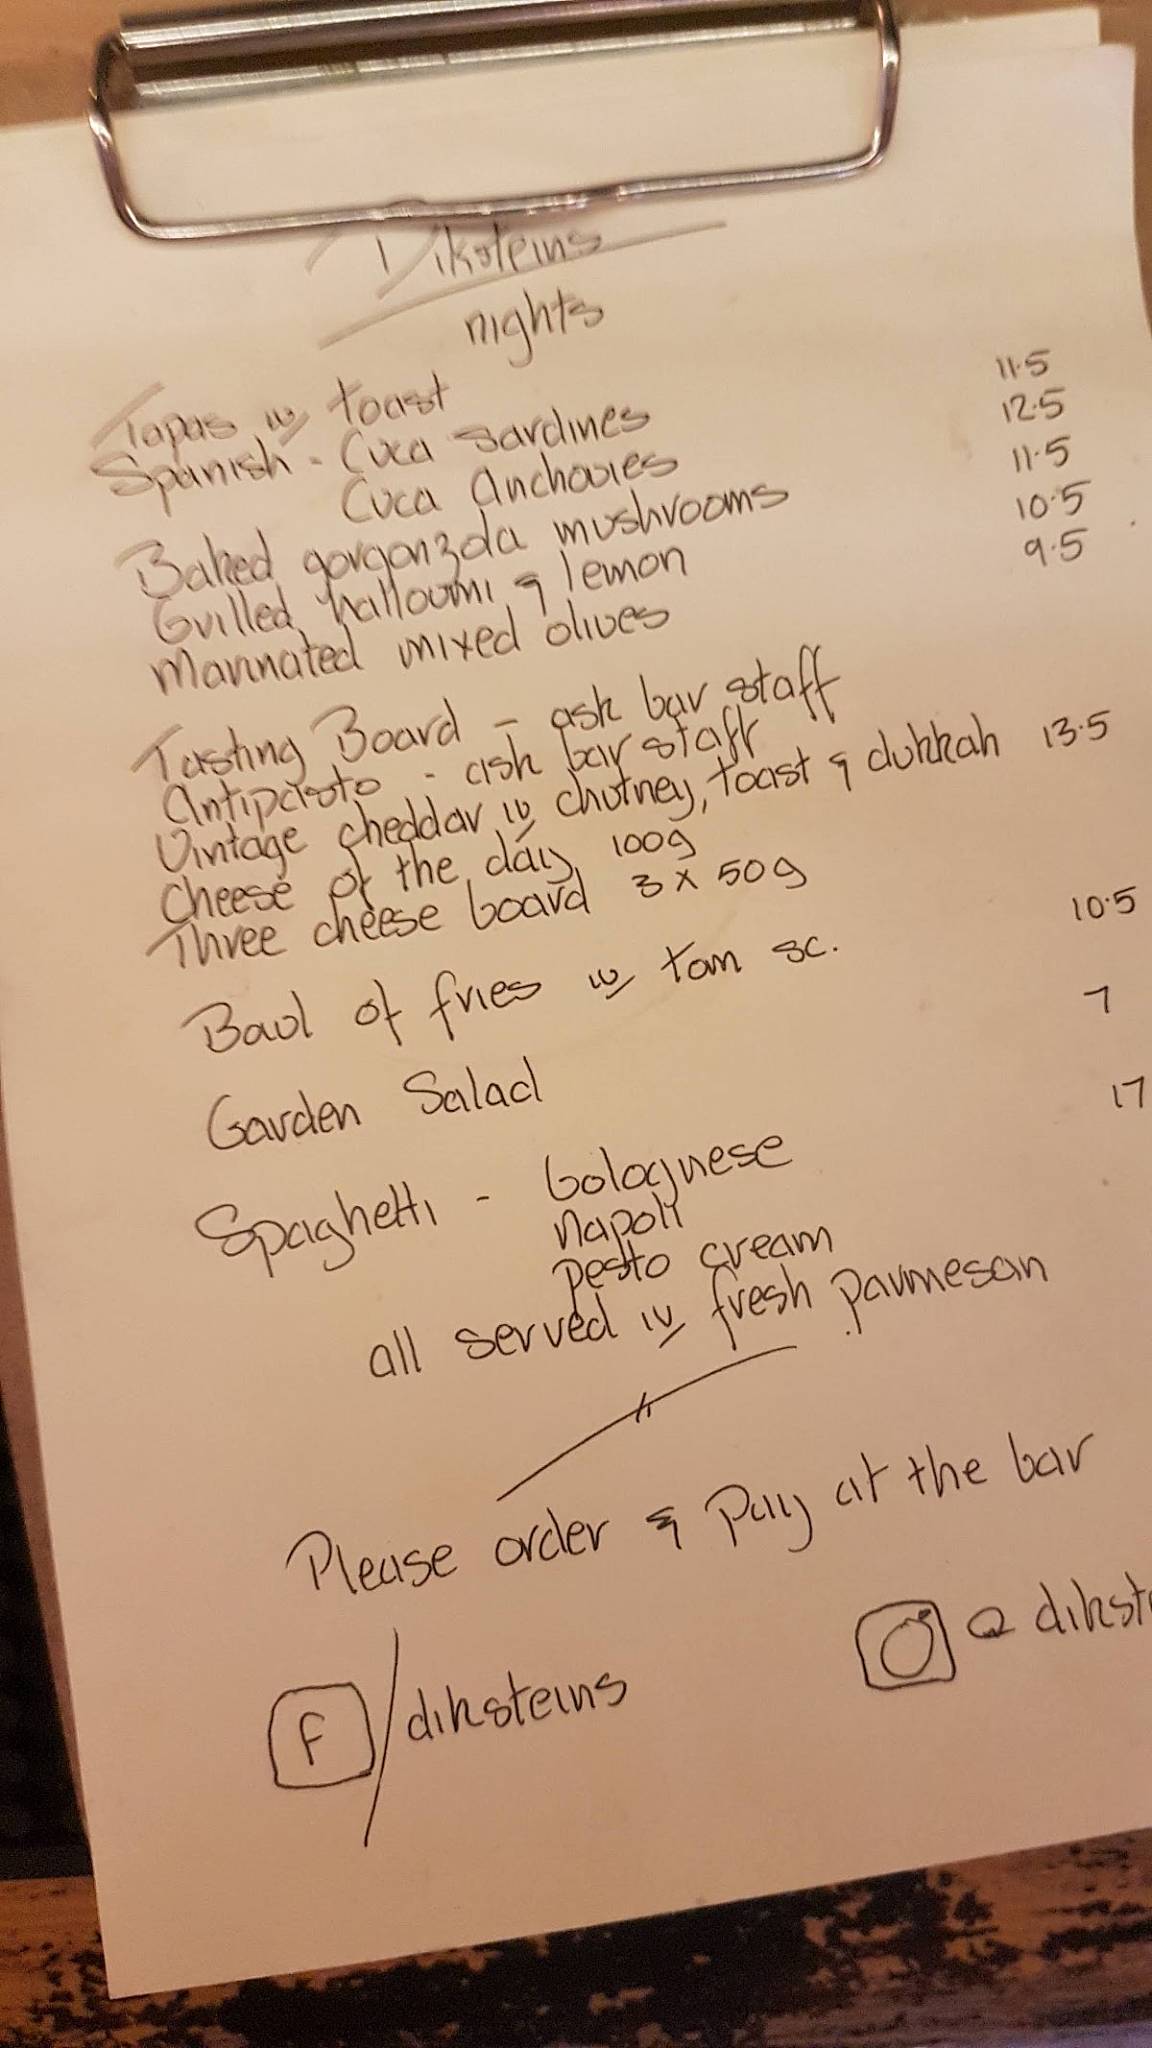 Diksteins
nights
Tapas w/ toast
Spanish - Cuca sardines 11.5
Cuca Anchovies 12.5
Baked gorgonzola mushrooms 11.5
Grilled halloumi & lemon 10.5
Marinated mixed olives 9.5
Tasting Board - ask bar staff
Antipasto - ask bar staff
Vintage cheddar w/ chutney, toast & dukkah 13.5
Cheese of the day 100g
Three cheese board 3 x 50g
Bowl of fries w/ tom sc. 10.5
Garden Salad 7
Spaghetti - bolognese 17
napoli
pesto cream
all served w/ fresh parmesan
Please order & Pay at the bar
F / diksteins
@ dikste